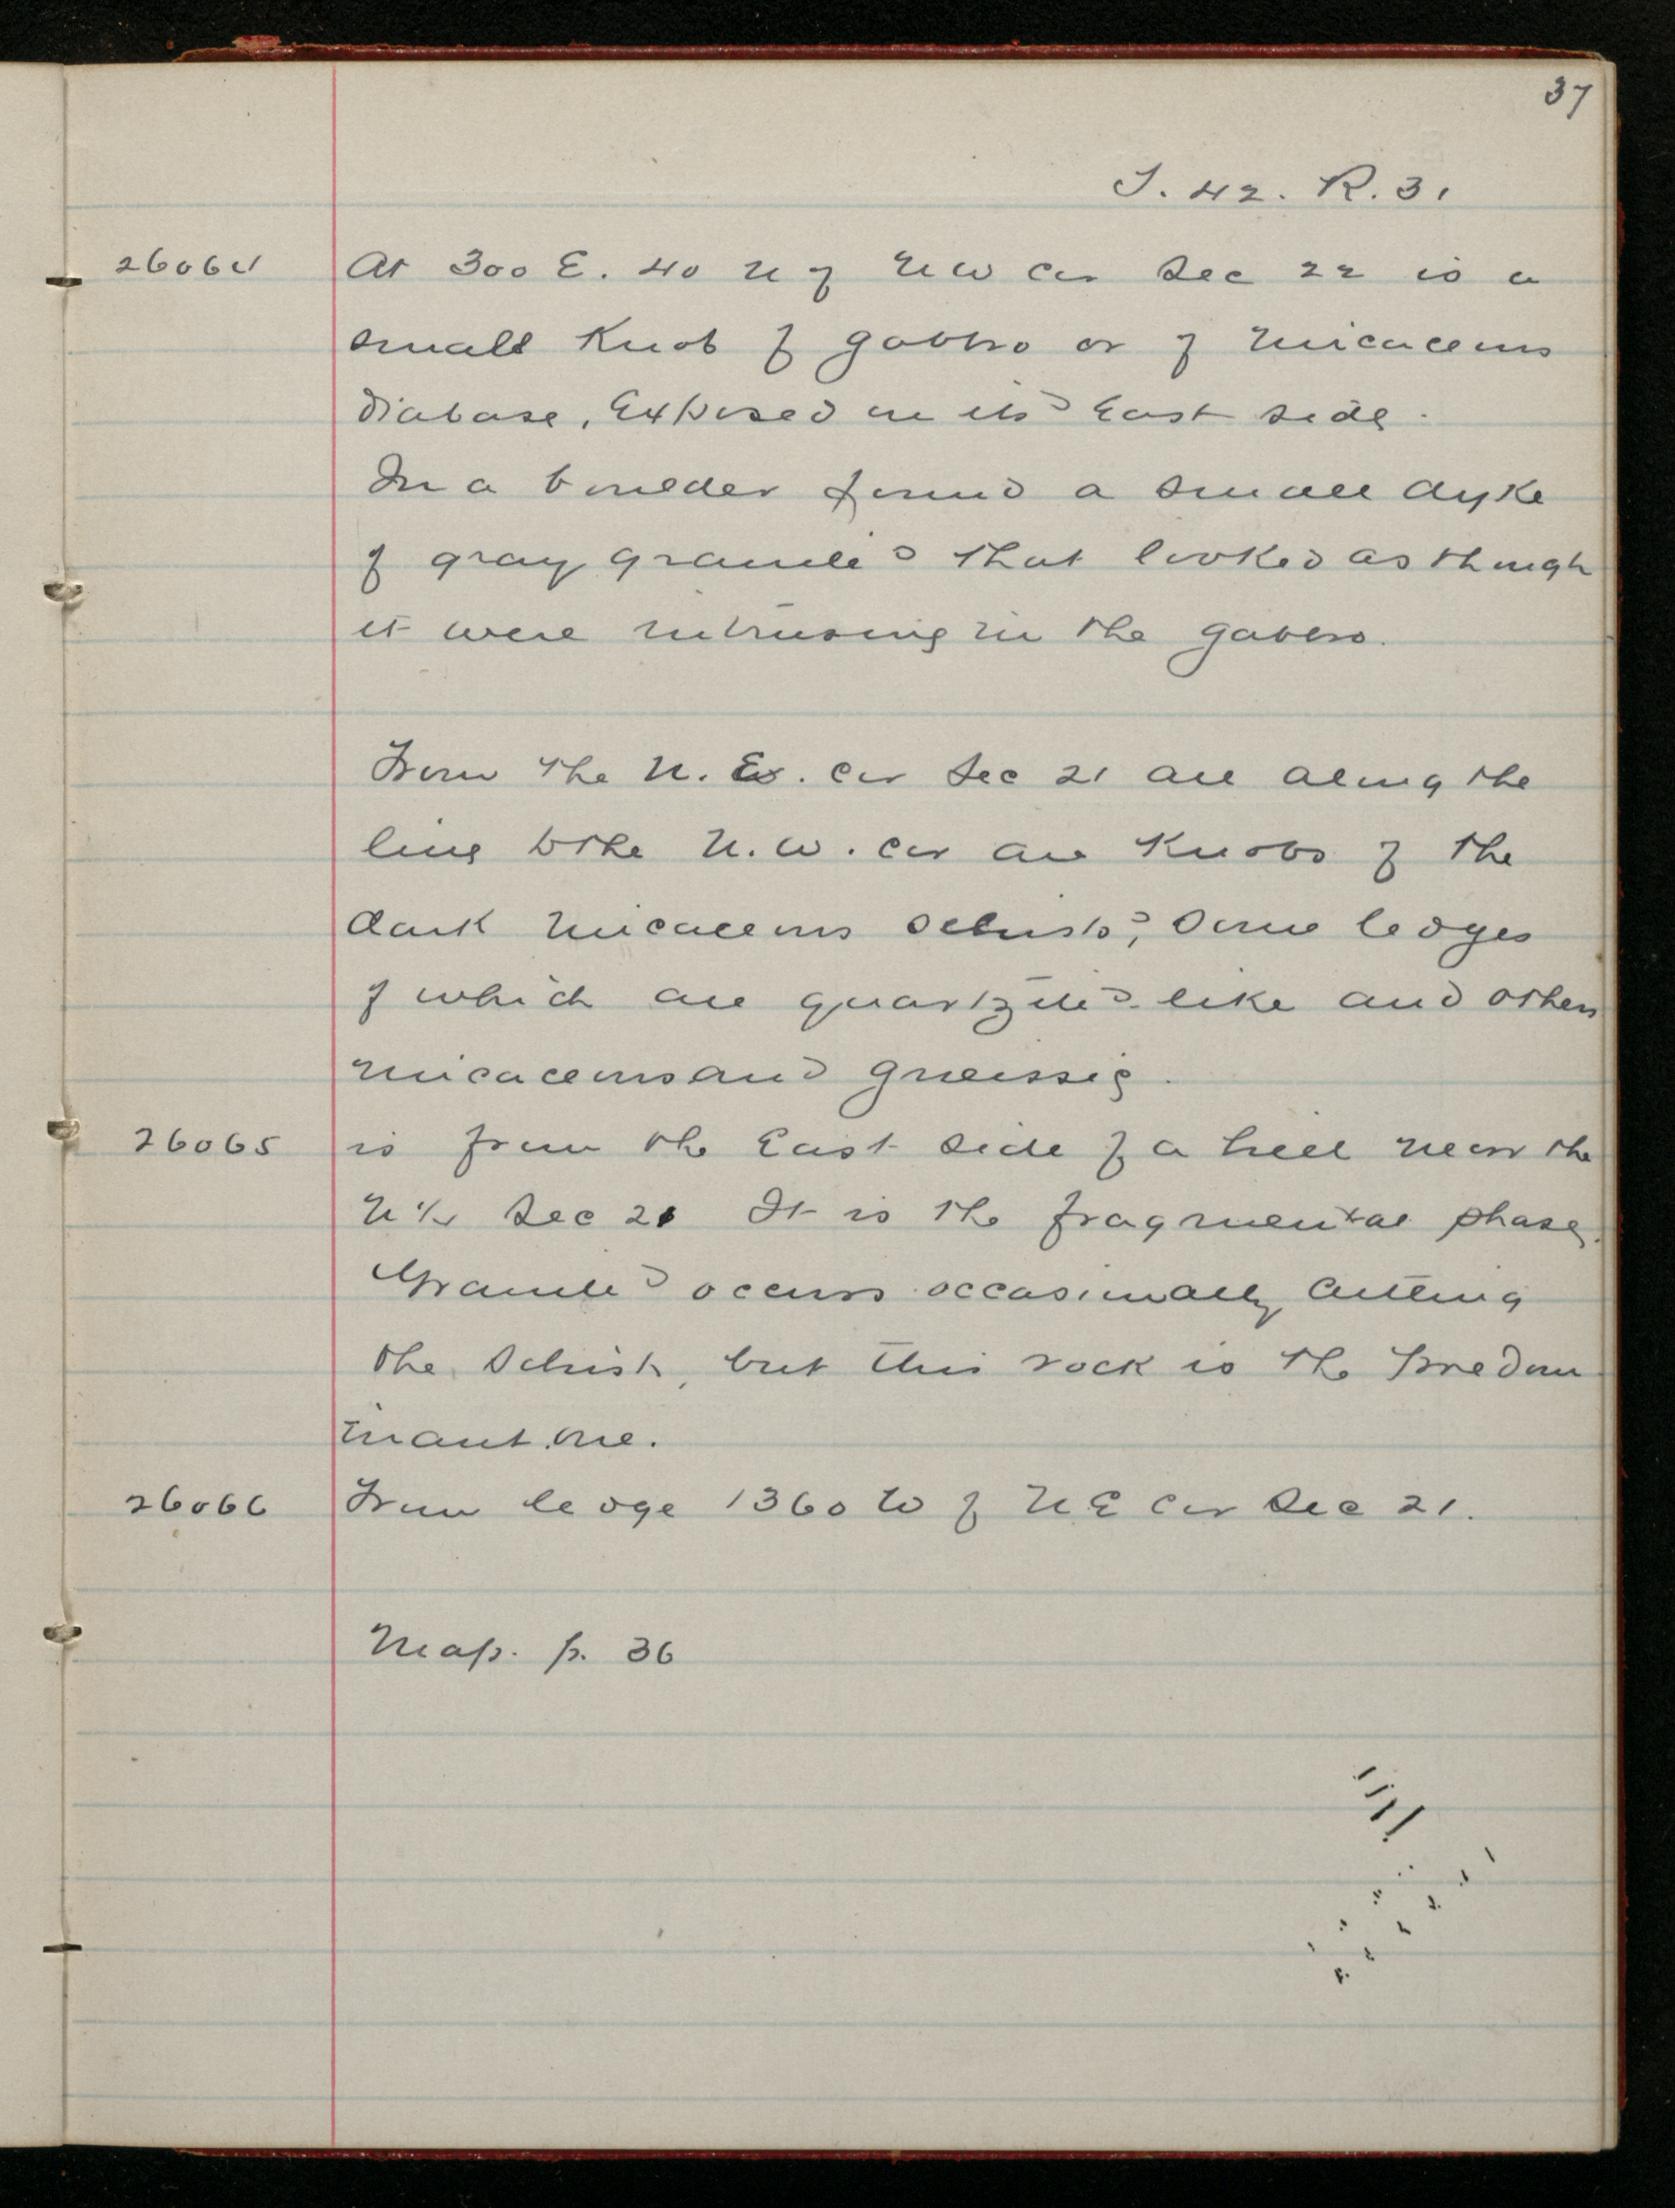 37
T. 42. R. 31
26064 At 300 E. 40 N of NW cor Sec 22 is a
small knob of gabbro or of micaceous
diabase, Exposed on its East side.
In a boulder found a small dyke
of gray granite that looked as though
it were intrusing in the gabbro.
From the N. E. cor Sec 21 all along the
line to the N. W. cor are knobs of the
dark micaceous schists, some ledges
of which are quartzite-like and others
micaceous and gneissic.
26065 is from the East side of a hill near the
N ¼ Sec 21 It is the fragmental phase.
Granite occurs occasionally cutting
the Schist, but this rock is the predom
inant one.
26066 From ledge 1360 W of NE cor Sec 21.
Map. p. 36